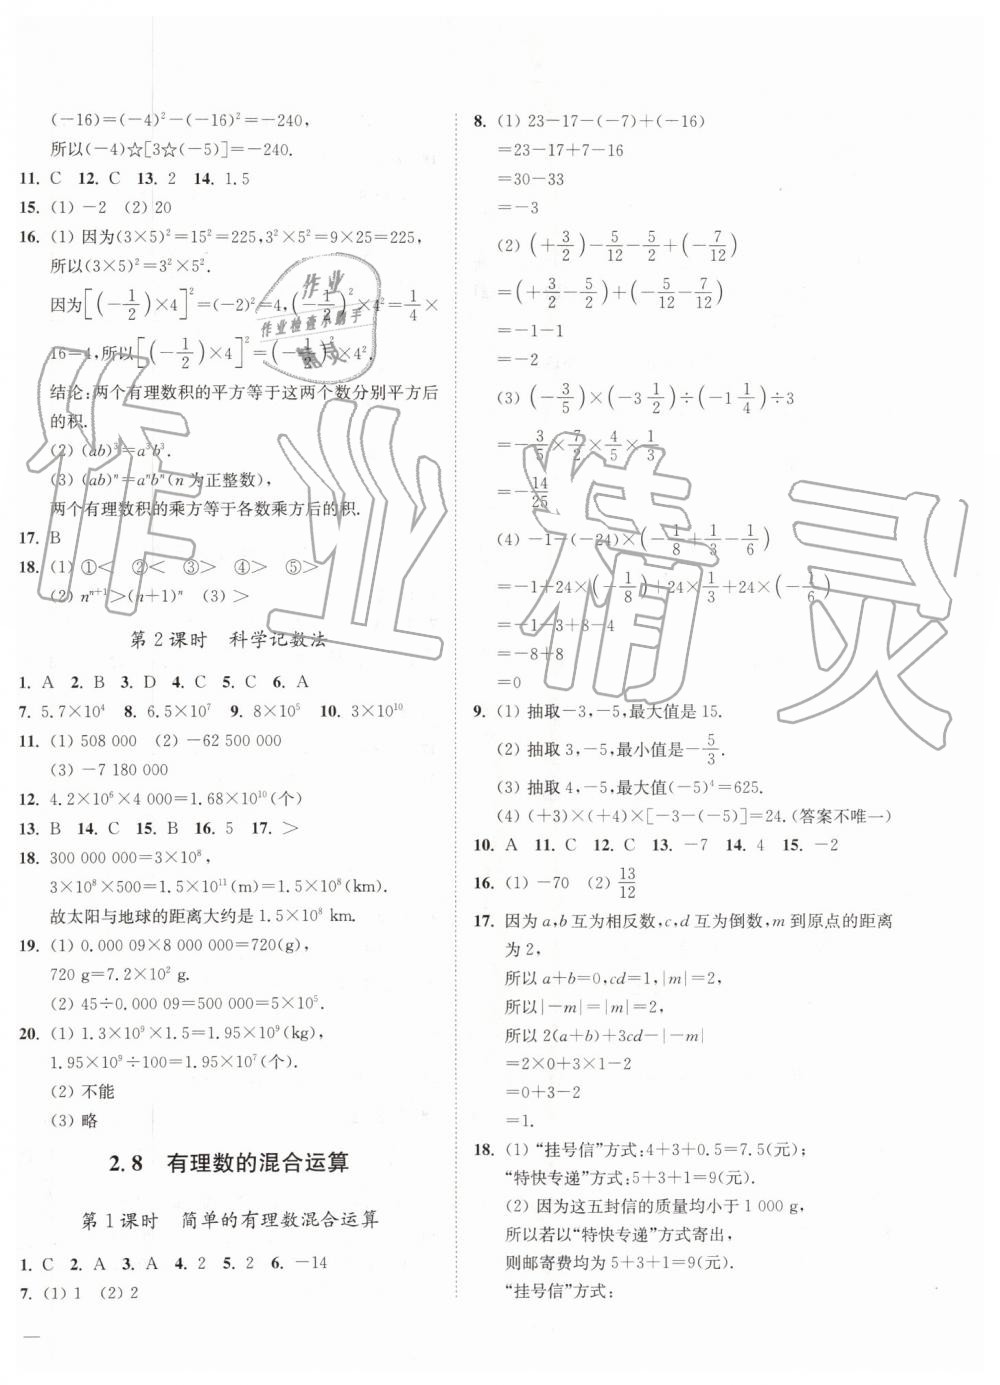 (-16)=(-4)²-(-16)²=-240,
所以(-4)☆[3☆(-5)]=-240.
11. C 12. C 13. 2 14. 1.5
15. (1) -2 (2) 20
16. (1) 因为(3×5)²=15²=225,3²×5²=9×25=225,
所以(3×5)²=3²×5².
因为[(-1/2)×4]²=(-2)²=4,(-1/2)²×4²=1/4×
16=4,所以[(-1/2)×4]²=(-1/2)²×4².
结论:两个有理数积的平方等于这两个数分别平方后
的积.
(2) (ab)³=a³b³.
(3) (ab)ⁿ=aⁿbⁿ(n为正整数),
两个有理数积的乘方等于各数乘方后的积.
17. B
18. (1) ①< ②< ③> ④> ⑤>
(2) nⁿ⁺¹>(n+1)ⁿ (3) >
第2课时 科学记数法
1. A 2. B 3. D 4. C 5. C 6. A
7. 5.7×10⁴ 8. 6.5×10⁷ 9. 8×10⁵ 10. 3×10¹⁰
11. (1) 508 000 (2) -62 500 000
(3) -7 180 000
12. 4.2×10⁶×4 000=1.68×10¹⁰(个)
13. B 14. C 15. B 16. 5 17. >
18. 300 000 000=3×10⁸,
3×10⁸×500=1.5×10¹¹(m)=1.5×10⁸(km).
故太阳与地球的距离大约是1.5×10⁸ km.
19. (1) 0.000 09×8 000 000=720(g),
720 g=7.2×10² g.
(2) 45÷0.000 09=500 000=5×10⁵.
20. (1) 1.3×10⁹×1.5=1.95×10⁹(kg),
1.95×10⁹÷100=1.95×10⁷(个).
(2) 不能
(3) 略
2.8 有理数的混合运算
第1课时 简单的有理数混合运算
1. C 2. A 3. A 4. 2 5. 2 6. -14
7. (1) 1 (2) 2
8. (1) 23-17-(-7)+(-16)
=23-17+7-16
=30-33
=-3
(2) (+3/2)-5/12-5/2+(-7/12)
=(+3/2-5/2)+(-5/12-7/12)
=-1-1
=-2
(3) (-3/5)×(-3 1/2)÷(-1 1/4)÷3
=-3/5×7/2×4/5×1/3
=-14/25
(4) -1-(-24)×(-1/8+1/3-1/6)
=-1+24×(-1/8)+24×1/3+24×(-1/6)
=-1-3+8-4
=-8+8
=0
9. (1) 抽取-3,-5,最大值是15.
(2) 抽取3,-5,最小值是-5/3.
(3) 抽取4,-5,最大值(-5)⁴=625.
(4) (+3)×(+4)×[-3-(-5)]=24.(答案不唯一)
10. A 11. C 12. C 13. -7 14. 4 15. -2
16. (1) -70 (2) 13/12
17. 因为a,b互为相反数,c,d互为倒数,m到原点的距离
为2,
所以a+b=0,cd=1,|m|=2,
所以|-m|=|m|=2,
所以2(a+b)+3cd-|-m|
=2×0+3×1-2
=0+3-2
=1.
18. (1) “挂号信”方式:4+3+0.5=7.5(元);
“特快专递”方式:5+3+1=9(元).
(2) 因为这五封信的质量均小于1 000 g,
所以若以“特快专递”方式寄出,
则邮寄费均为5+3+1=9(元).
“挂号信”方式:
作业精灵
作业
作业检查小助手
精灵